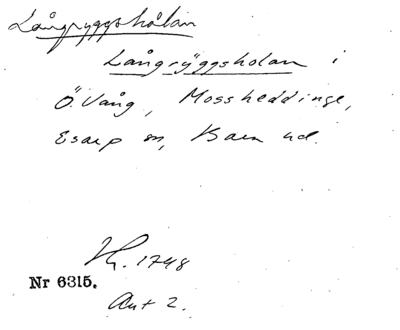 Långryggshålan
Långrÿggsholan i
Ö. Vång, Mossheddinge,
Esarp sn, Bara hd.
1748
Nr 6315.
Akt 2.